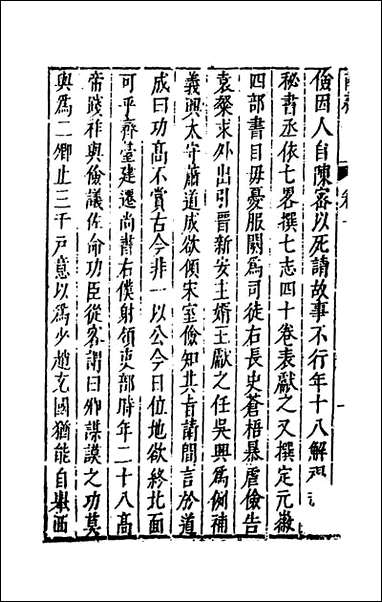 儉因人自陳密以死請故事不行年十八解
秘書丞依七畧撰七志四十卷表獻之又撰定元徽
四部書目毋憂服闋爲司徒右長史蒼梧暴虐儉告
袁粲求外出引晉新安主壻王獻之任吳興爲例補
義興太守蕭道成欲傾宋室儉知其旨請間言於道
成曰功高不賞古今非一以公今日位地欲終北面
可乎齊臺建遷尚書右僕射領吏部時年二十八高
帝踐祚與儉議佐命功臣從容謂曰卿謀謨之功莫
與爲二卿止三千戸意以爲少趙充國猶能自舉西